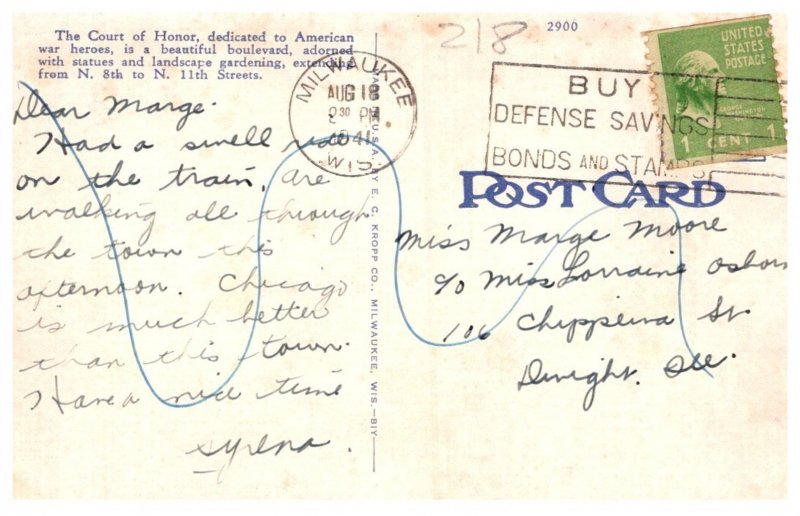 The Court of Honor, dedicated to American
war heroes, is a beautiful boulevard, adorned
with statues and landscape gardening, extending
from N. 8th to N. 11th Streets.
Dear Marge.
Had a swell ride
on the train, are
walking all through
the town this
afternoon. Chicago
is much better
than this town.
Have a nice time
Syrena.
MADE IN U.S.A. BY E. C. KROPP CO., MILWAUKEE, WIS.—BIY
218
2900
MILWAUKEE
AUG 18
30 PM
1941
WIS
BUY
DEFENSE SAVINGS
BONDS AND STAMPS
UNITED
STATES
POSTAGE
GEORGE WASHINGTON
1 CENT 1
POST CARD
Miss Marge Moore
c/o Miss Lorraine Osborn
106 Chippewa St.
Dwight, Ill.